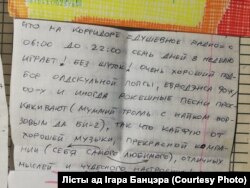 ЧТО НА КОРРИДОРЕ «ДУШЕВНОЕ РАДИО» С
06:00 ДО 22:00 СЕМЬ ДНЕЙ В НЕДЕЛЮ
ИГРАЕТ! БЕЗ ШУТОК! ОЧЕНЬ ХОРОШИЙ ПОД-
БОР ОЛДСКУЛЬНОЙ ПОПСЫ, ЕВРОДЭНСА
И ИНОГДА РОКЕШНЫЕ ПЕСНИ ПРО-
СКАКИВАЮТ (МУМИЙ ТРОЛЛЬ С
ДА БИ-2), ТАК ЧТО КАЙФУЮ ОТ
ХОРОШЕЙ МУЗЫКИ, ПРЕКРАСНОЙ КОМПА-
НИИ (СЕБЯ САМОГО ЛЮБИМОГО), ОТЛИЧНЫХ
МЫСЛЕЙ И ЧУДЕСНОГО
Лісты ад Ігара Банцэра (Courtesy Photo)